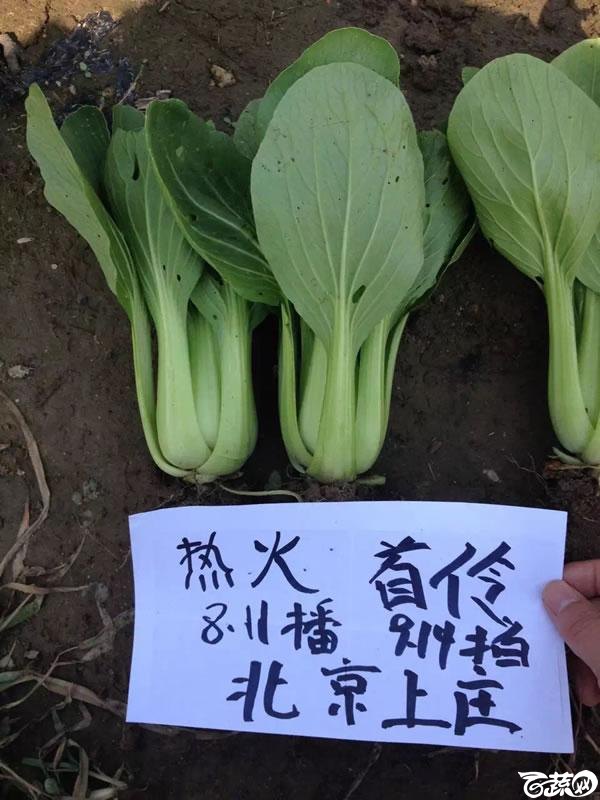 热火 首伶
8.11播 9.14拍
北京上庄
百蔬网